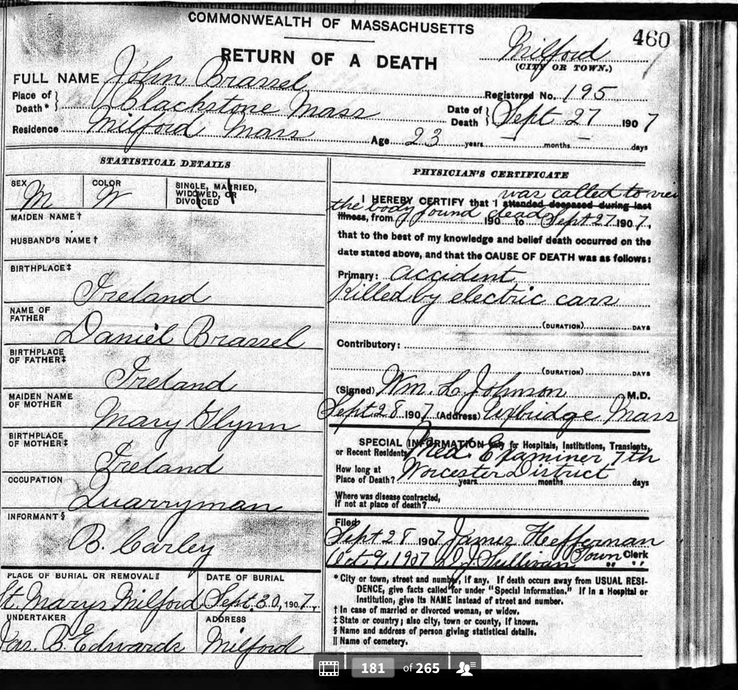 COMMONWEALTH OF MASSACHUSETTS
460
RETURN OF A DEATH
Milford
(CITY OR TOWN.)
FULL NAME John Brassel
Registered No. 195
Place of Death* } Blackstone Mass
Date of Death } Sept 27 1907
Residence Milford Mass
Age 23 years - months - days
STATISTICAL DETAILS
SEX M
COLOR W
SINGLE, MARRIED, WIDOWED, OR DIVORCED
MAIDEN NAME †
HUSBAND'S NAME †
BIRTHPLACE ‡
Ireland
NAME OF FATHER
Daniel Brassel
BIRTHPLACE OF FATHER ‡
Ireland
MAIDEN NAME OF MOTHER
Mary Glynn
BIRTHPLACE OF MOTHER ‡
Ireland
OCCUPATION
Quarryman
INFORMANT §
B. Carley
PLACE OF BURIAL OR REMOVAL ‖
St. Marys Milford
DATE OF BURIAL
Sept. 30, 1907.
UNDERTAKER
Jas. B. Edwards
ADDRESS
Milford
PHYSICIAN'S CERTIFICATE
was called to view
I HEREBY CERTIFY that I attended deceased during last
the body found dead
illness, from 190 to Sept 27 1907,
that to the best of my knowledge and belief death occurred on the
date stated above, and that the CAUSE OF DEATH was as follows:
Primary: accident
Killed by electric cars
(DURATION) DAYS
Contributory:
(DURATION) DAYS
(Signed) Wm. L. Johnson M.D.
Sept 28 1907 (Address) Uxbridge Mass
SPECIAL INFORMATION only for Hospitals, Institutions, Transients,
or Recent Residents
Med. Examiner 7th
Worcester District
How long at Place of Death? years months days
Where was disease contracted, if not at place of death?
Filed
Sept 28 1907 James Heffernan
Oct 9, 1907 D. J. Sullivan Town Clerk
* City or town, street and number, if any. If death occurs away from USUAL RESI-
DENCE, give facts called for under "Special Information." If in a Hospital or
Institution, give its NAME instead of street and number.
† In case of married or divorced woman, or widow.
‡ State or country; also city, town or county, if known.
§ Name and address of person giving statistical details.
‖ Name of cemetery.
181 of 265